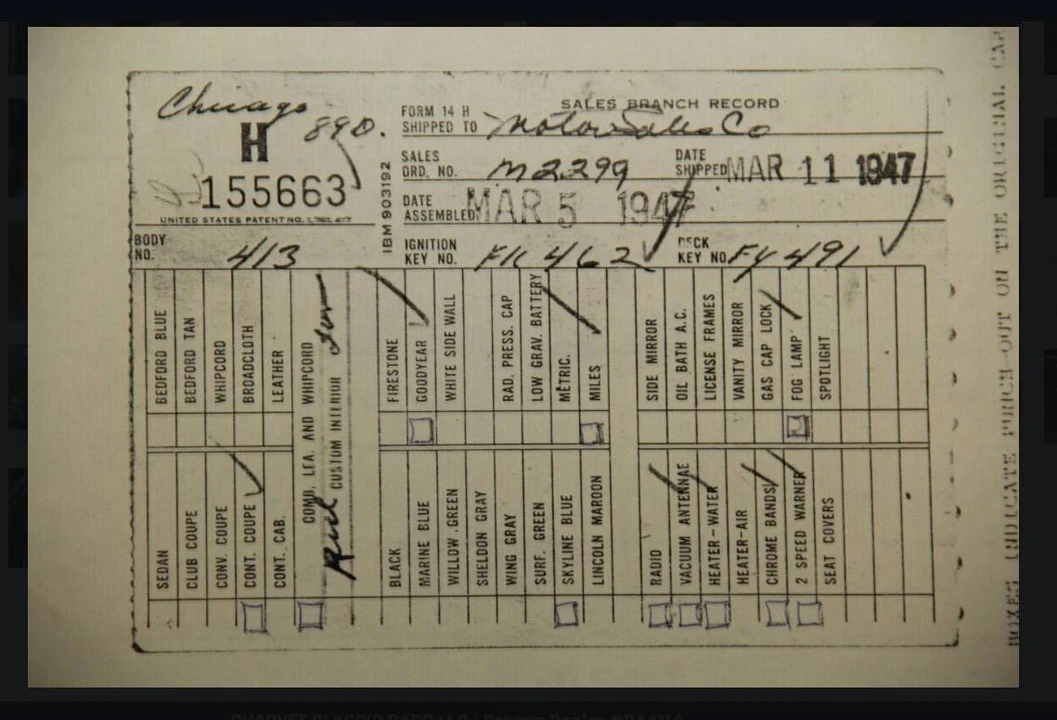 Chicago
H 890.
FORM 14 H
SALES BRANCH RECORD
SHIPPED TO Motor Sales Co
155663
UNITED STATES PATENT NO.
IBM 903192
SALES
ORD. NO. M2299
DATE
SHIPPED MAR 11 1947
DATE
ASSEMBLED MAR 5 1947
BODY
NO. 413
IGNITION
KEY NO. FK 462
DECK
KEY NO. FY 491
BEDFORD BLUE
BEDFORD TAN
WHIPCORD
BROADCLOTH
LEATHER
COMB. LEA. AND WHIPCORD
Red CUSTOM INTERIOR
FIRESTONE
GOODYEAR
WHITE SIDE WALL
RAD. PRESS. CAP
LOW GRAV. BATTERY
METRIC.
MILES
SIDE MIRROR
OIL BATH A.C.
LICENSE FRAMES
VANITY MIRROR
GAS CAP LOCK
FOG LAMP
SPOTLIGHT
SEDAN
CLUB COUPE
CONV. COUPE
CONT. COUPE
CONT. CAB.
BLACK
MARINE BLUE
WILLOW GREEN
SHELDON GRAY
WING GRAY
SURF. GREEN
SKYLINE BLUE
LINCOLN MAROON
RADIO
VACUUM ANTENNAE
HEATER-WATER
HEATER-AIR
CHROME BANDS
2 SPEED WARNER
SEAT COVERS
BOXES INDICATE PUNCH-OUT ON THE ORIGINAL CAR